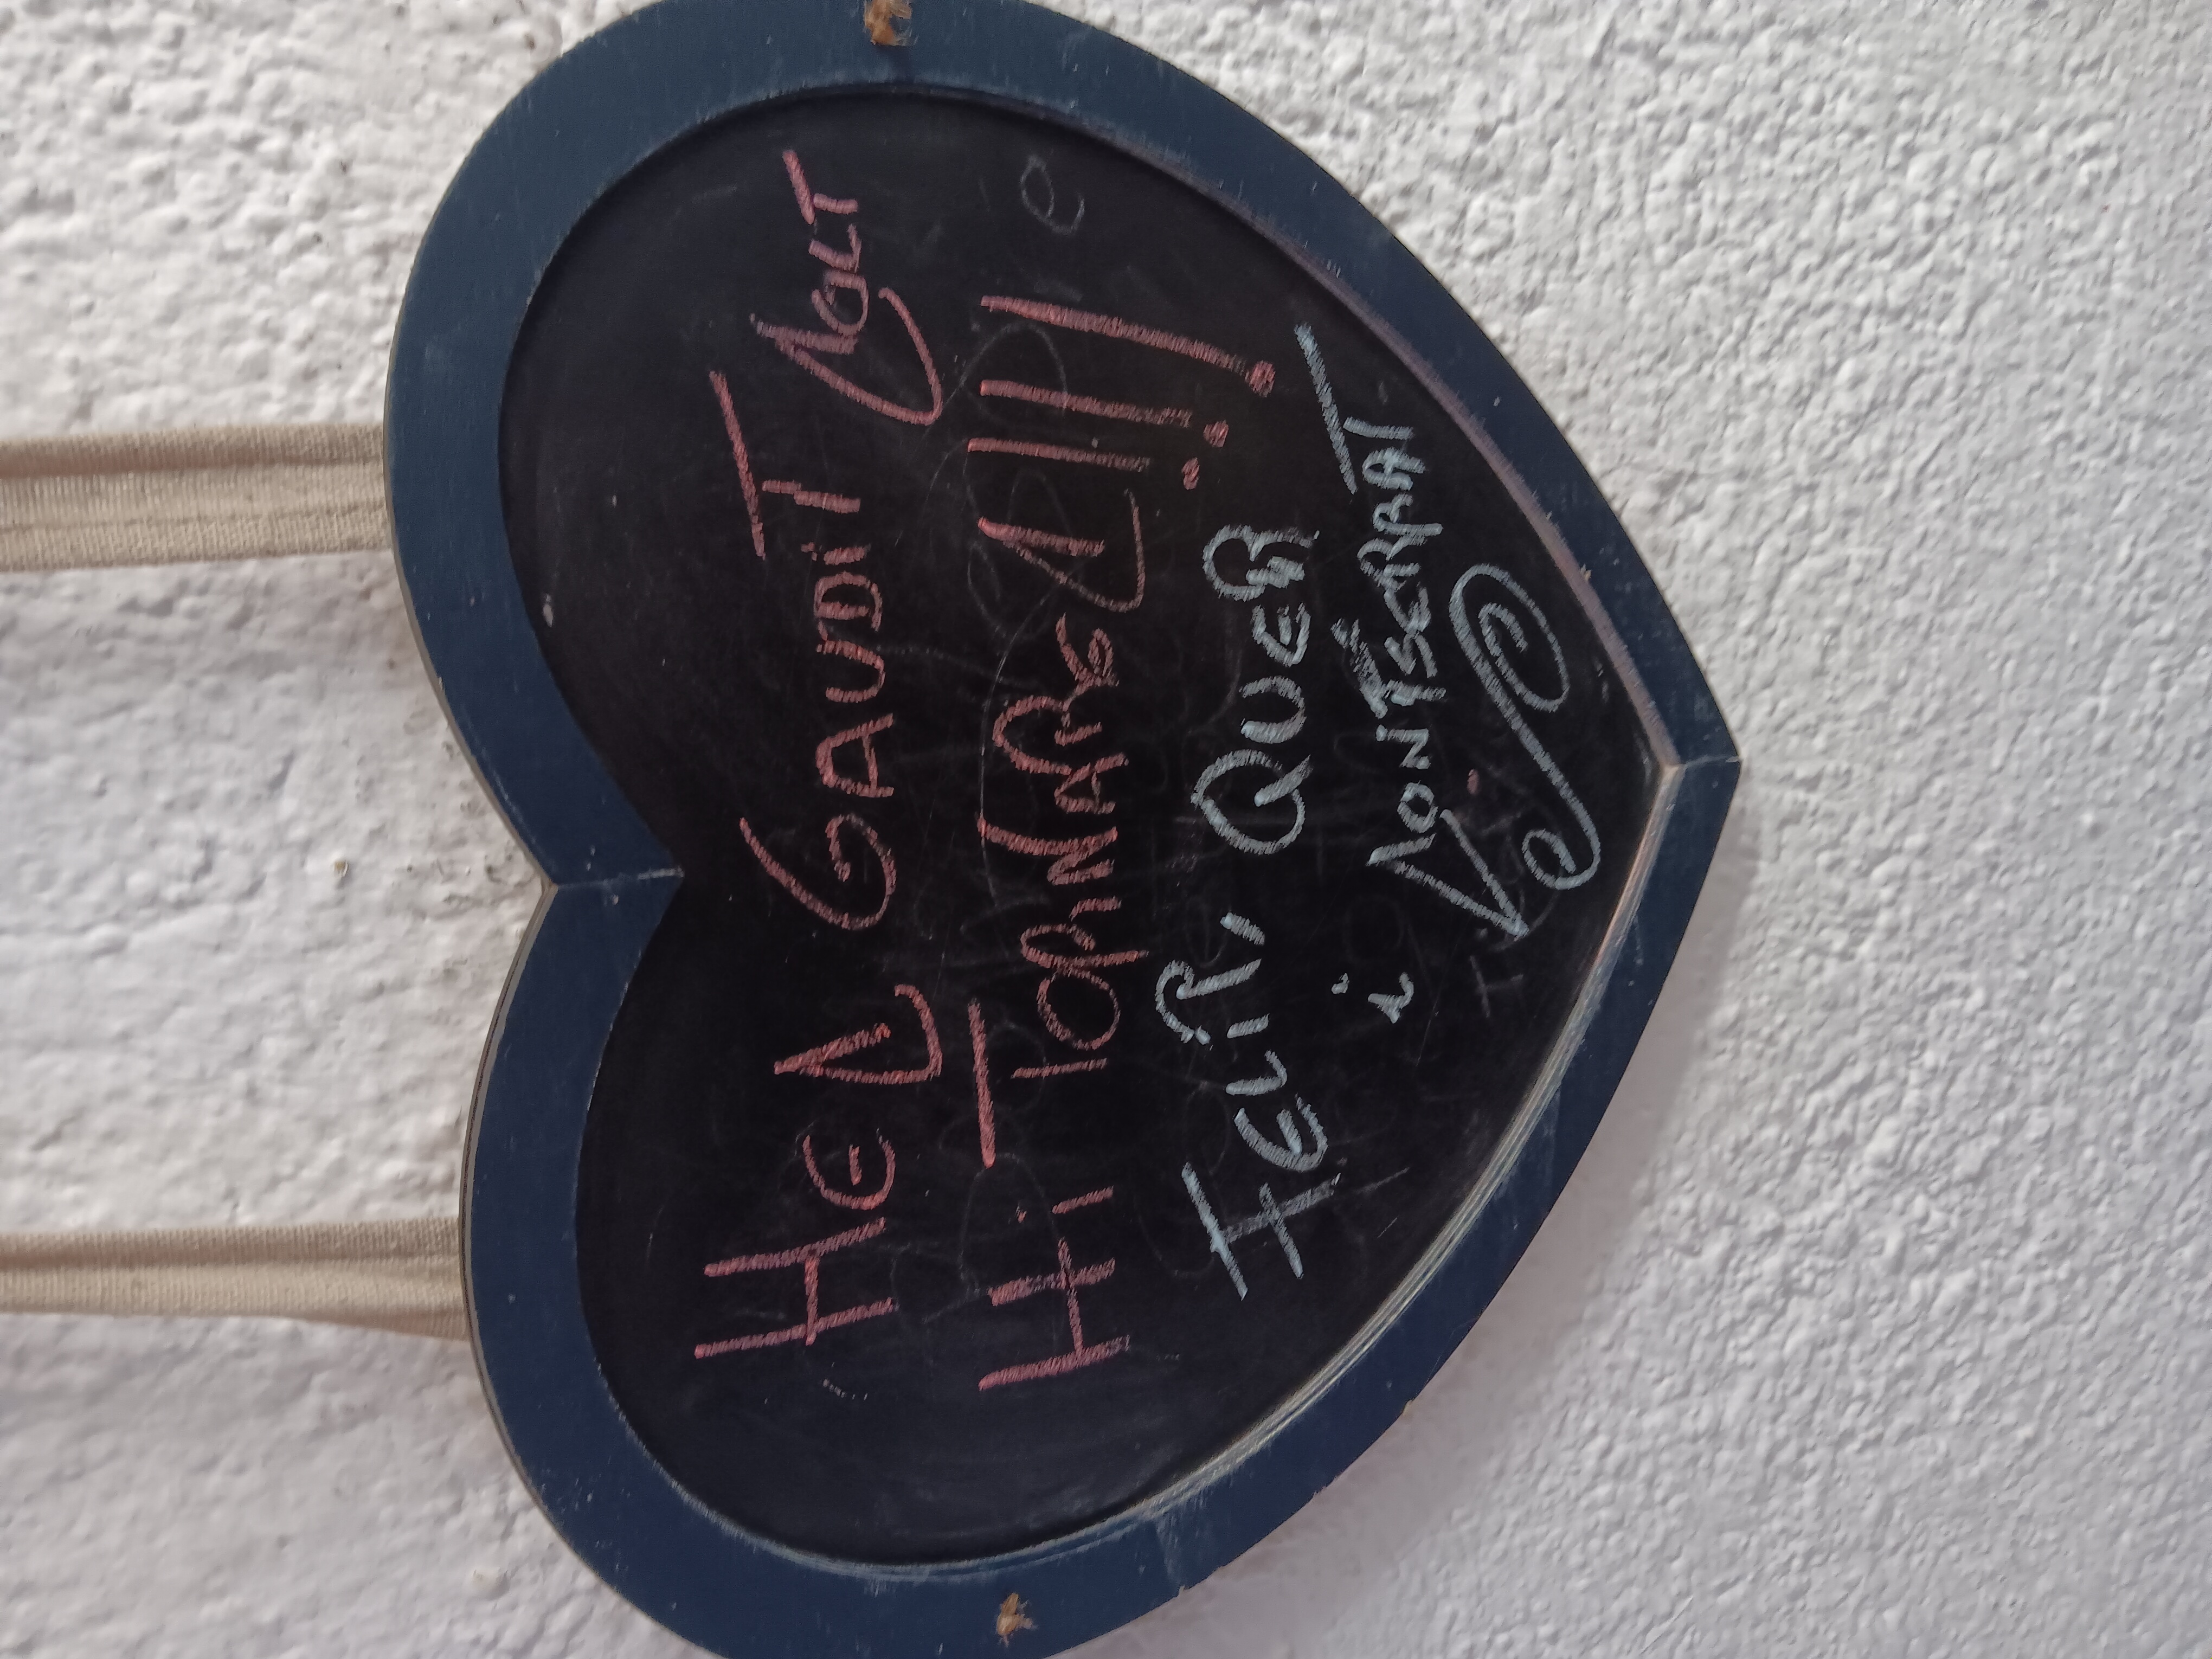 HEM GAUDIT MOLT
HI TORNAREM!!!
FELIP, QUER
i MONTSERRAT